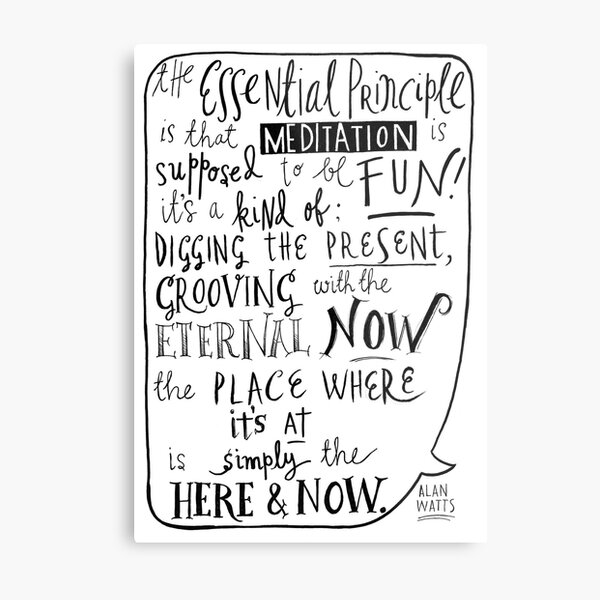 tHE ESSENtial PRinciplE
is that MEDITATION is
supposed to be FUN!
it's a kind of:
DIGGING THE PRESENT,
GROOVING with the
ETERNAL NOW
the PLACE WHERE
it's AT
is simply the
HERE & NOW.
ALAN
WATTS